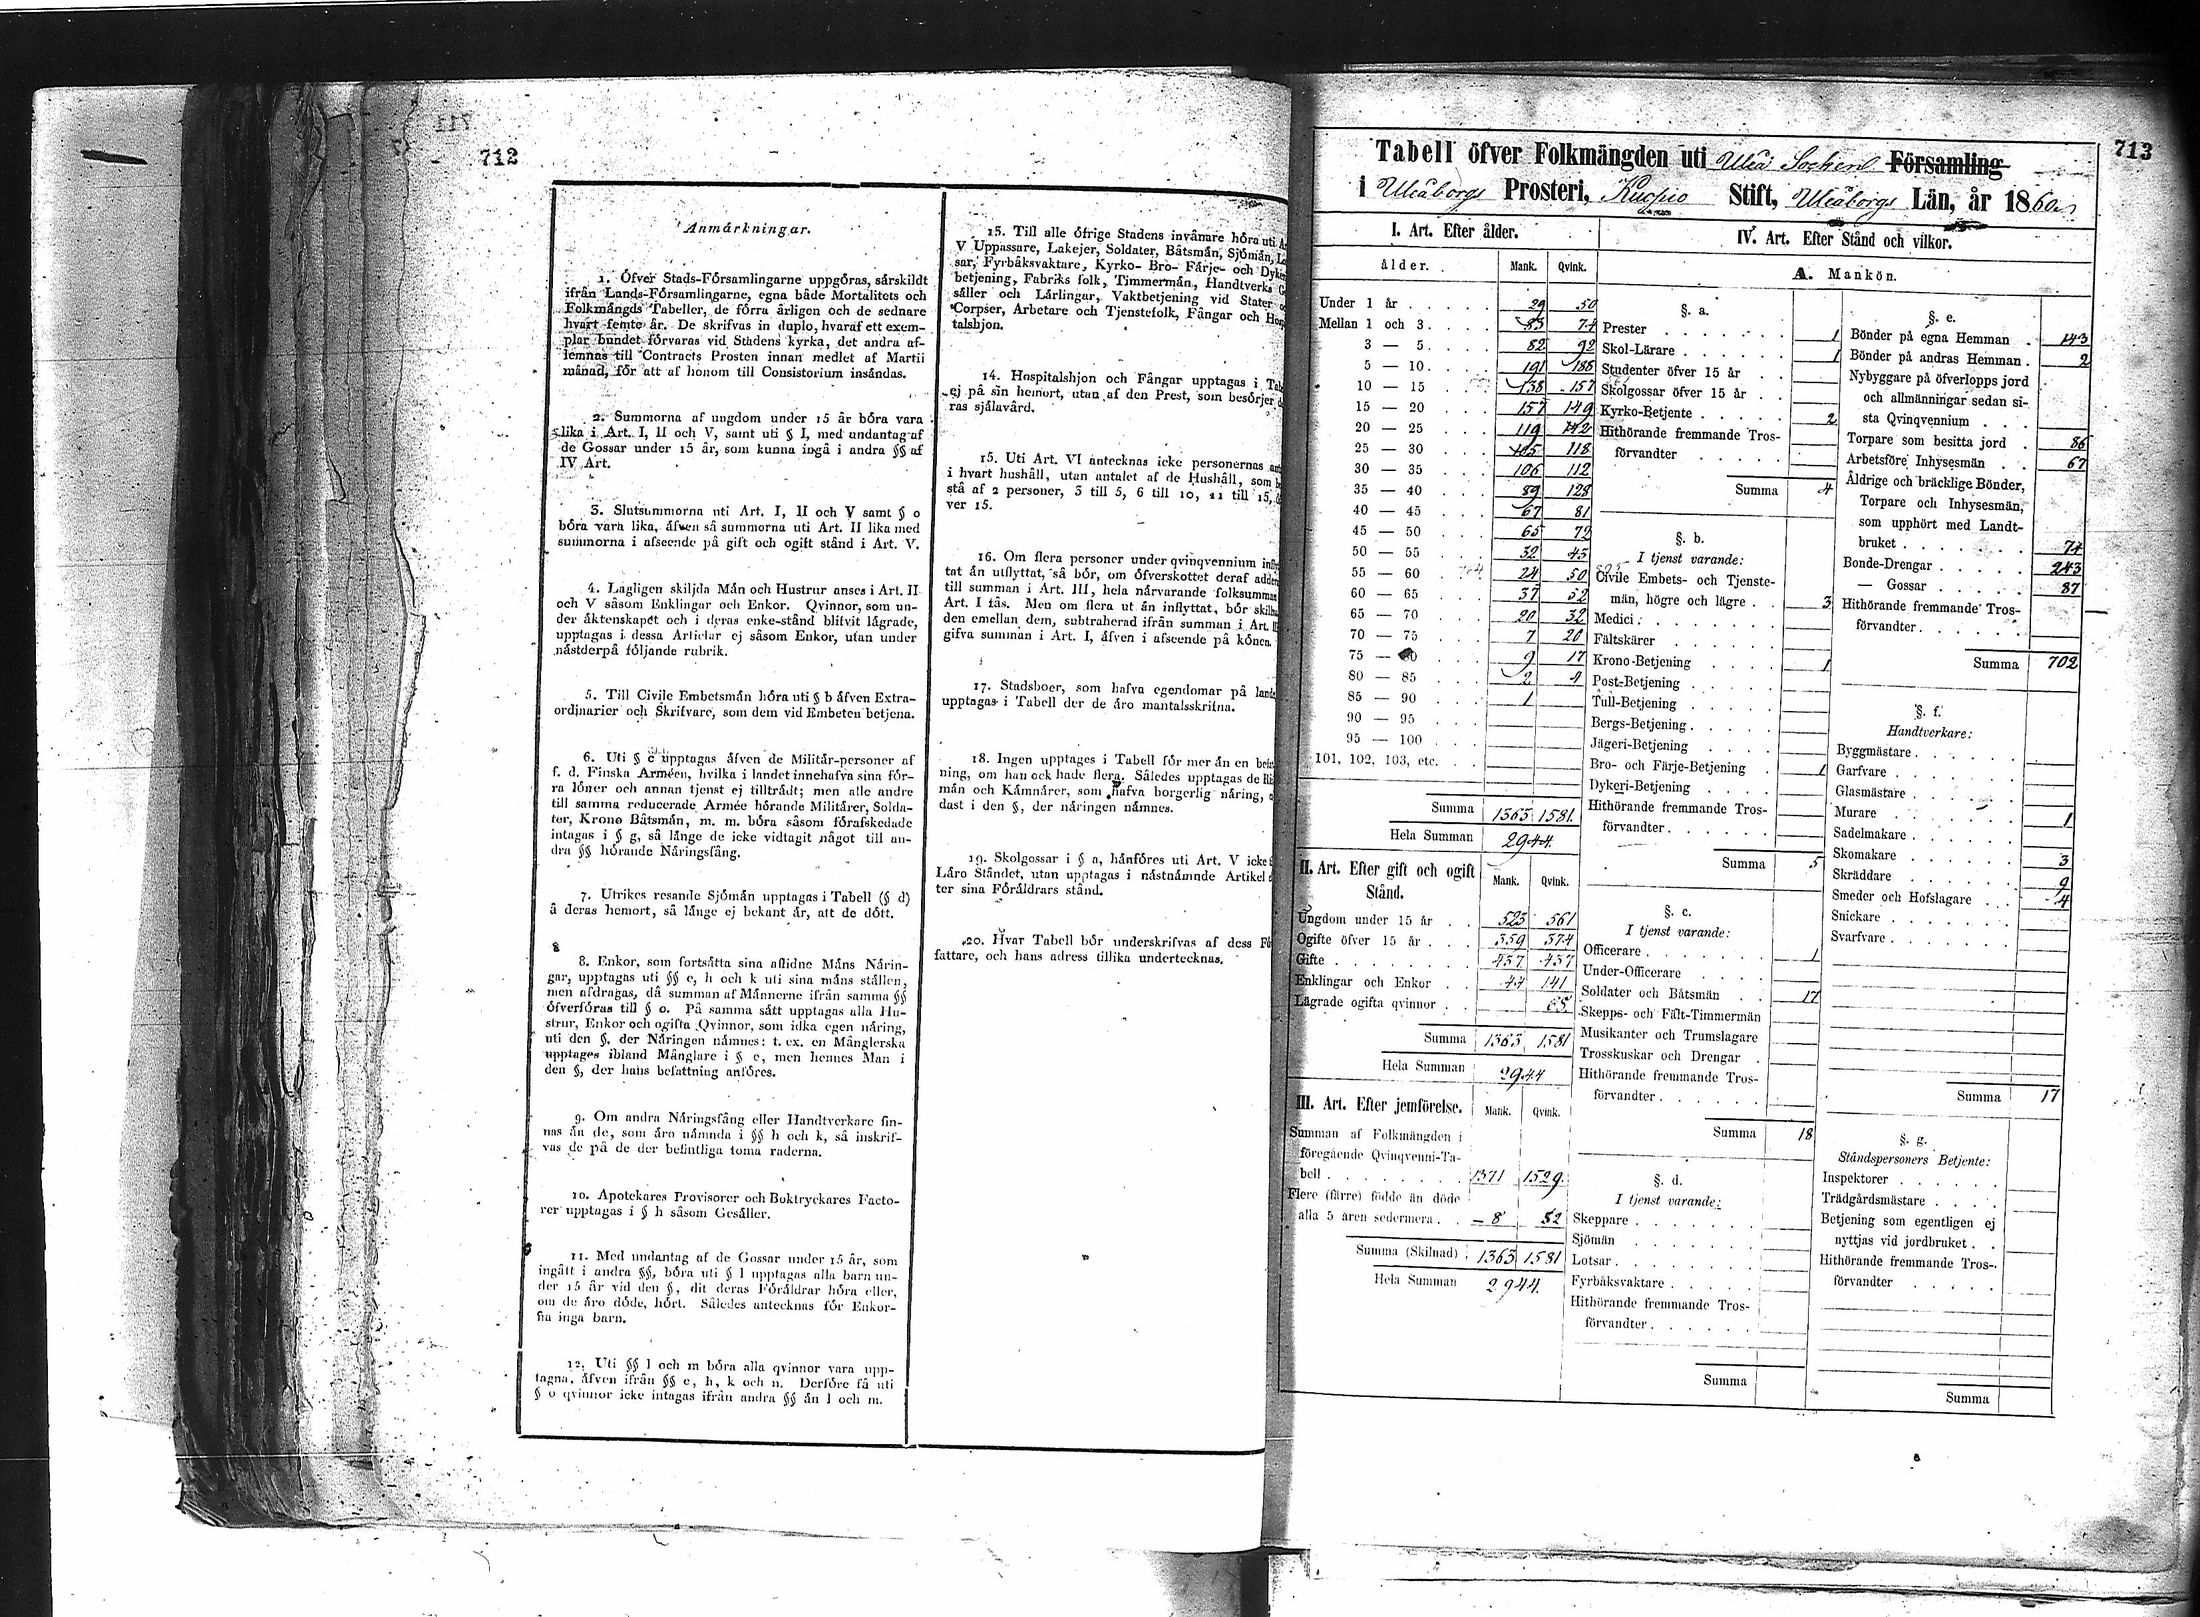 712
Anmärkningar.
1. Öfver Stads-Församlingarne uppgöras, särskildt
ifrån Lands-Församlingarne, egna både Mortalitets och
Folkmängds Tabeller, de förra årligen och de sednare
hvart femte år. De skrifvas in duplo, hvaraf ett exem-
plar bundet förvaras vid Stadens kyrka, det andra af-
lemnas till Contracts Prosten innan medlet af Martii
månad, för att af honom till Consistorium insändas.
2. Summorna af ungdom under 15 år böra vara
lika i Art. I, II och V, samt uti § I, med undantag af
de Gossar under 15 år, som kunna ingå i andra §§ af
IV Art.
3. Slutsummorna uti Art. I, II och V samt § o
böra vara lika, äfven så summorna uti Art. II lika med
summorna i afseende på gift och ogift stånd i Art. V.
4. Lagligen skiljda Män och Hustrur anses i Art. II
och V såsom Enklingar och Enkor. Qvinnor, som un-
der äktenskapet och i deras enke-stånd blifvit lägrade,
upptagas i dessa Artiklar ej såsom Enkor, utan under
nästderpå följande rubrik.
5. Till Civile Embetsmän höra uti § b äfven Extra-
ordinarier och Skrifvare, som dem vid Embeten betjena.
6. Uti § c upptagas äfven de Militär-personer af
f. d. Finska Arméen, hvilka i landet innehafva sina för-
ra löner och annan tjenst ej tillträdt; men alle andre
till samma reducerade Armée hörande Militärer, Solda-
ter, Krono Båtsmän, m. m. böra såsom förafskedade
intagas i § g, så länge de icke vidtagit något till an-
dra §§ hörande Näringsfång.
7. Utrikes resande Sjömän upptagas i Tabell (§ d)
å deras hemort, så länge ej bekant är, att de dött.
8. Enkor, som fortsätta sina aflidne Mäns Närin-
gar, upptagas uti §§ e, h och k uti sina mäns ställen,
men afdragas, då summan af Männerne ifrån samma §§
öfverföras till § o. På samma sätt upptagas alla Hu-
strur, Enkor och ogifta Qvinnor, som idka egen näring,
uti den §, der Näringen nämnes: t. ex. en Månglerska
upptages ibland Månglare i § e, men hennes Man i
den §, der hans befattning anföres.
9. Om andra Näringsfång eller Handtverkare fin-
nas än de, som äro nämnda i §§ h och k, så inskrif-
vas de på de der befintliga toma raderna.
10. Apotekares Provisorer och Boktryckares Facto-
rer upptagas i § h såsom Gesäller.
11. Med undantag af de Gossar under 15 år, som
ingått i andra §§, böra uti § l upptagas alla barn un-
der 15 år vid den §, dit deras Föräldrar höra eller,
om de äro döde, hört. Således antecknas för Enkor-
na inga barn.
12. Uti §§ l och m böra alla qvinnor vara upp-
tagna, äfven ifrån §§ e, h, k och n. Derföre få uti
§ o qvinnor icke intagas ifrån andra §§ än l och m.
13. Till alle öfrige Stadens invånare höra uti
V Uppassare, Lakejer, Soldater, Båtsmän, Sjömän,
sar, Fyrbåksvaktare, Kyrko- Bro- Färje- och
betjening, Fabriks folk, Timmermän, Handtverks
säller och Lärlingar, Vaktbetjening vid Stater
Corpser, Arbetare och Tjenstefolk, Fångar och
talshjon.
14. Hospitalshjon och Fångar upptagas i
ej på sin hemort, utan af den Prest, som besörjer
ras själavård.
15. Uti Art. VI antecknas icke personernas
i hvart hushåll, utan antalet af de Hushåll, som
stå af 2 personer, 3 till 5, 6 till 10, 11 till 15,
ver 15.
16. Om flera personer under qvinqvennium
tat än utflyttat, så bör, om öfverskottet deraf
till summan i Art. III, hela närvarande folksumman
Art. I tås. Men om flera ut än inflyttat, bör
den emellan dem, subtraherad ifrån summan i Art.
gifva summan i Art. I, äfven i afseende på könen.
17. Stadsboer, som hafva egendomar på
upptagas i Tabell der de äro mantalsskrifna.
18. Ingen upptages i Tabell för mer än en
ning, om han ock hade flera. Således upptagas de
män och Kämnärer, som hafva borgerlig näring,
dast i den §, der näringen nämnes.
19. Skolgossar i § a, hänföres uti Art. V icke
Läro Ståndet, utan upptagas i nästnämnde Artikel
ter sina Föräldrars stånd.
20. Hvar Tabell bör underskrifvas af dess
fattare, och hans adress tillika undertecknas.
713
Tabell öfver Folkmängden uti Uleå Socken Församling
i Uleåborgs Prosteri, Kuopio Stift, Uleåborgs Län, år 1860.
I. Art. Efter ålder.
ålder. Mank. Qvink.
Under 1 år 29 50
Mellan 1 och 3 83 74
3 — 5 82 92
5 — 10 191 188
10 — 15 138 157
15 — 20 157 149
20 — 25 119 142
25 — 30 105 118
30 — 35 106 112
35 — 40 89 128
40 — 45 67 81
45 — 50 65 72
50 — 55 32 43
55 — 60 24 50
60 — 65 37 52
65 — 70 20 32
70 — 75 7 20
75 — 80 9 17
80 — 85 2 4
85 — 90 1
90 — 95
95 — 100
101, 102, 103, etc.
Summa 1363 1581.
Hela Summan 2944.
II. Art. Efter gift och ogift
Stånd. Mank. Qvink.
Ungdom under 15 år 523 561
Ogifte öfver 15 år 359 374
Gifte 437 437
Enklingar och Enkor 44 141
Lägrade ogifta qvinnor 68
Summa 1363 1581
Hela Summan 2944
III. Art. Efter jemförelse. Mank. Qvink.
Summan af Folkmängden i
föregående Qvinqvenni-Ta-
bell 1371 1529
Flere (färre) födde än döde
alla 5 åren sedermera — 8 52
Summa (Skilnad) 1363 1581
Hela Summan 2944.
IV. Art. Efter Stånd och vilkor.
A. Mankön.
§. a.
Prester 1
Skol-Lärare 1
Studenter öfver 15 år
Skolgossar öfver 15 år
Kyrko-Betjente 2
Hithörande fremmande Tros-
förvandter
Summa 4
§. b.
I tjenst varande:
Civile Embets- och Tjenste-
män, högre och lägre 3
Medici
Fältskärer
Krono-Betjening 1
Post-Betjening
Tull-Betjening
Bergs-Betjening
Jägeri-Betjening
Bro- och Färje-Betjening 1
Dykeri-Betjening
Hithörande fremmande Tros-
förvandter
Summa 5
§. c.
I tjenst varande:
Officerare 1
Under-Officerare
Soldater och Båtsmän 17
Skepps- och Fält-Timmermän
Musikanter och Trumslagare
Trosskuskar och Drengar
Hithörande fremmande Tros-
förvandter
Summa 18
§. d.
I tjenst varande:
Skeppare
Sjömän
Lotsar
Fyrbåksvaktare
Hithörande fremmande Tros-
förvandter
Summa
§. e.
Bönder på egna Hemman 143
Bönder på andras Hemman 2
Nybyggare på öfverlopps jord
och allmänningar sedan si-
sta Qvinqvennium
Torpare som besitta jord 86
Arbetsföre Inhysesmän 67
Åldrige och bräcklige Bönder,
Torpare och Inhysesmän,
som upphört med Landt-
bruket 74
Bonde-Drengar 243
— Gossar 87
Hithörande fremmande Tros-
förvandter
Summa 702
§. f.
Handtverkare:
Byggmästare
Garfvare
Glasmästare
Murare 1
Sadelmakare
Skomakare 3
Skräddare 9
Smeder och Hofslagare 4
Snickare
Svarfvare
Summa 17
§. g.
Ståndspersoners Betjente:
Inspektorer
Trädgårdsmästare
Betjening som egentligen ej
nyttjas vid jordbruket
Hithörande fremmande Tros-
förvandter
Summa